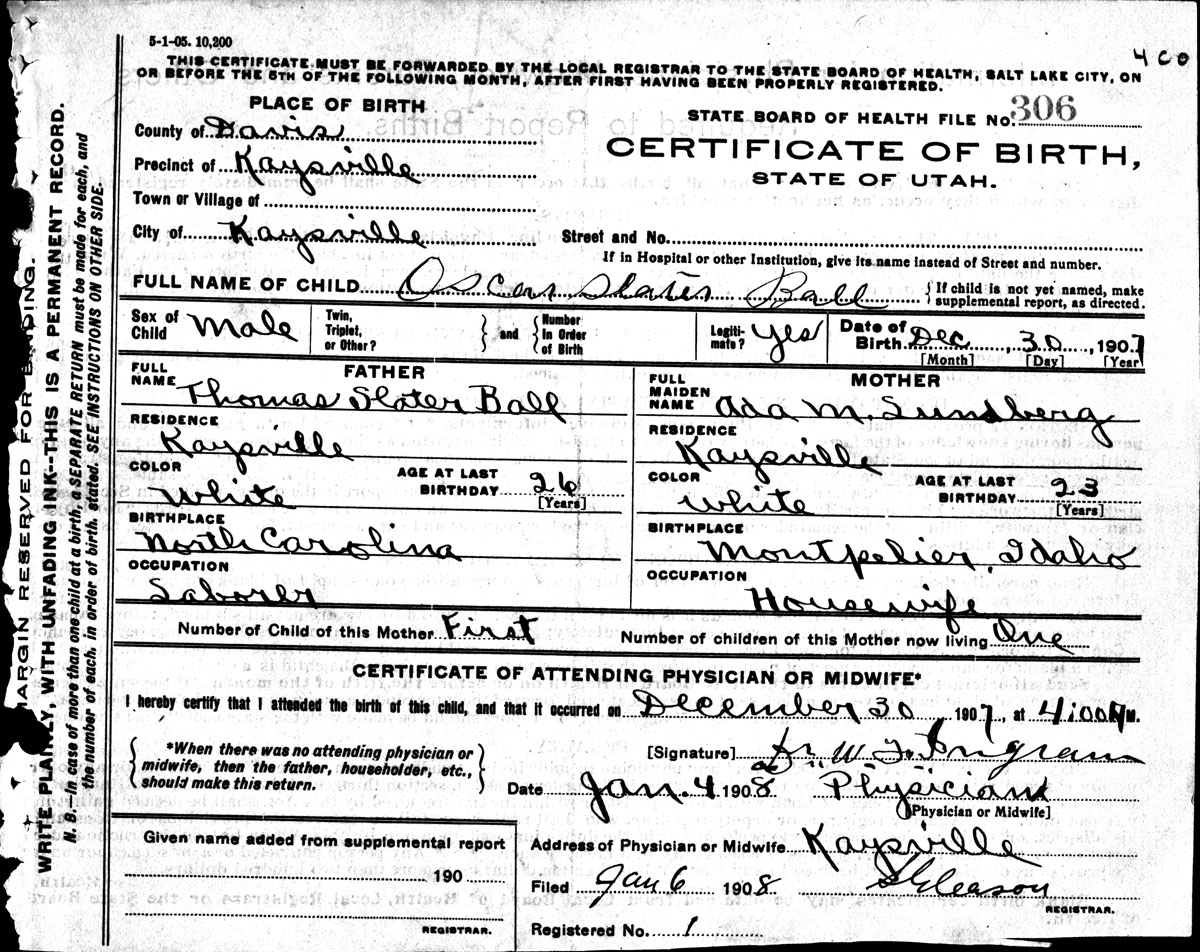 5-1-05. 10,200
4 C O
THIS CERTIFICATE MUST BE FORWARDED BY THE LOCAL REGISTRAR TO THE STATE BOARD OF HEALTH, SALT LAKE CITY, ON
OR BEFORE THE 5TH OF THE FOLLOWING MONTH, AFTER FIRST HAVING BEEN PROPERLY REGISTERED.
PLACE OF BIRTH
STATE BOARD OF HEALTH FILE No. 306
County of Davis
CERTIFICATE OF BIRTH,
Precinct of Kaysville
STATE OF UTAH.
Town or Village of
City of Kaysville Street and No.
If in Hospital or other Institution, give its name instead of Street and number.
FULL NAME OF CHILD Oscar Slater Ball { If child is not yet named, make
supplemental report, as directed.
Sex of Child Male
Twin, Triplet, or Other? } and { Number in Order of Birth
Legiti-mate? Yes
Date of Birth Dec 30, 1907
[Month] [Day] [Year
FATHER
FULL NAME Thomas Slater Ball
RESIDENCE
Kaysville
COLOR
White
AGE AT LAST BIRTHDAY 26
[Years]
BIRTHPLACE
North Carolina
OCCUPATION
Laborer
MOTHER
FULL MAIDEN NAME Ada M. Sundberg
RESIDENCE
Kaysville
COLOR
White
AGE AT LAST BIRTHDAY 23
[Years]
BIRTHPLACE
Montpelier, Idaho
OCCUPATION
Housewife
Number of Child of this Mother First Number of children of this Mother now living One
CERTIFICATE OF ATTENDING PHYSICIAN OR MIDWIFE*
I hereby certify that I attended the birth of this child, and that it occurred on December 30, 1907, at 4:00 M.
{ *When there was no attending physician or
midwife, then the father, householder, etc.,
should make this return. }
[Signature] Dr. W. J. Ingram
Date Jan. 4 1908 Physician
[Physician or Midwife]
Given name added from supplemental report
190
REGISTRAR.
Address of Physician or Midwife Kaysville
Filed Jan 6 1908 Gleason
REGISTRAR.
Registered No. 1
MARGIN RESERVED FOR BINDING.
WRITE PLAINLY, WITH UNFADING INK--THIS IS A PERMANENT RECORD.
N. B. In case of more than one child at a birth, a SEPARATE RETURN must be made for each, and
the number of each, in order of birth, stated. SEE INSTRUCTIONS ON OTHER SIDE.